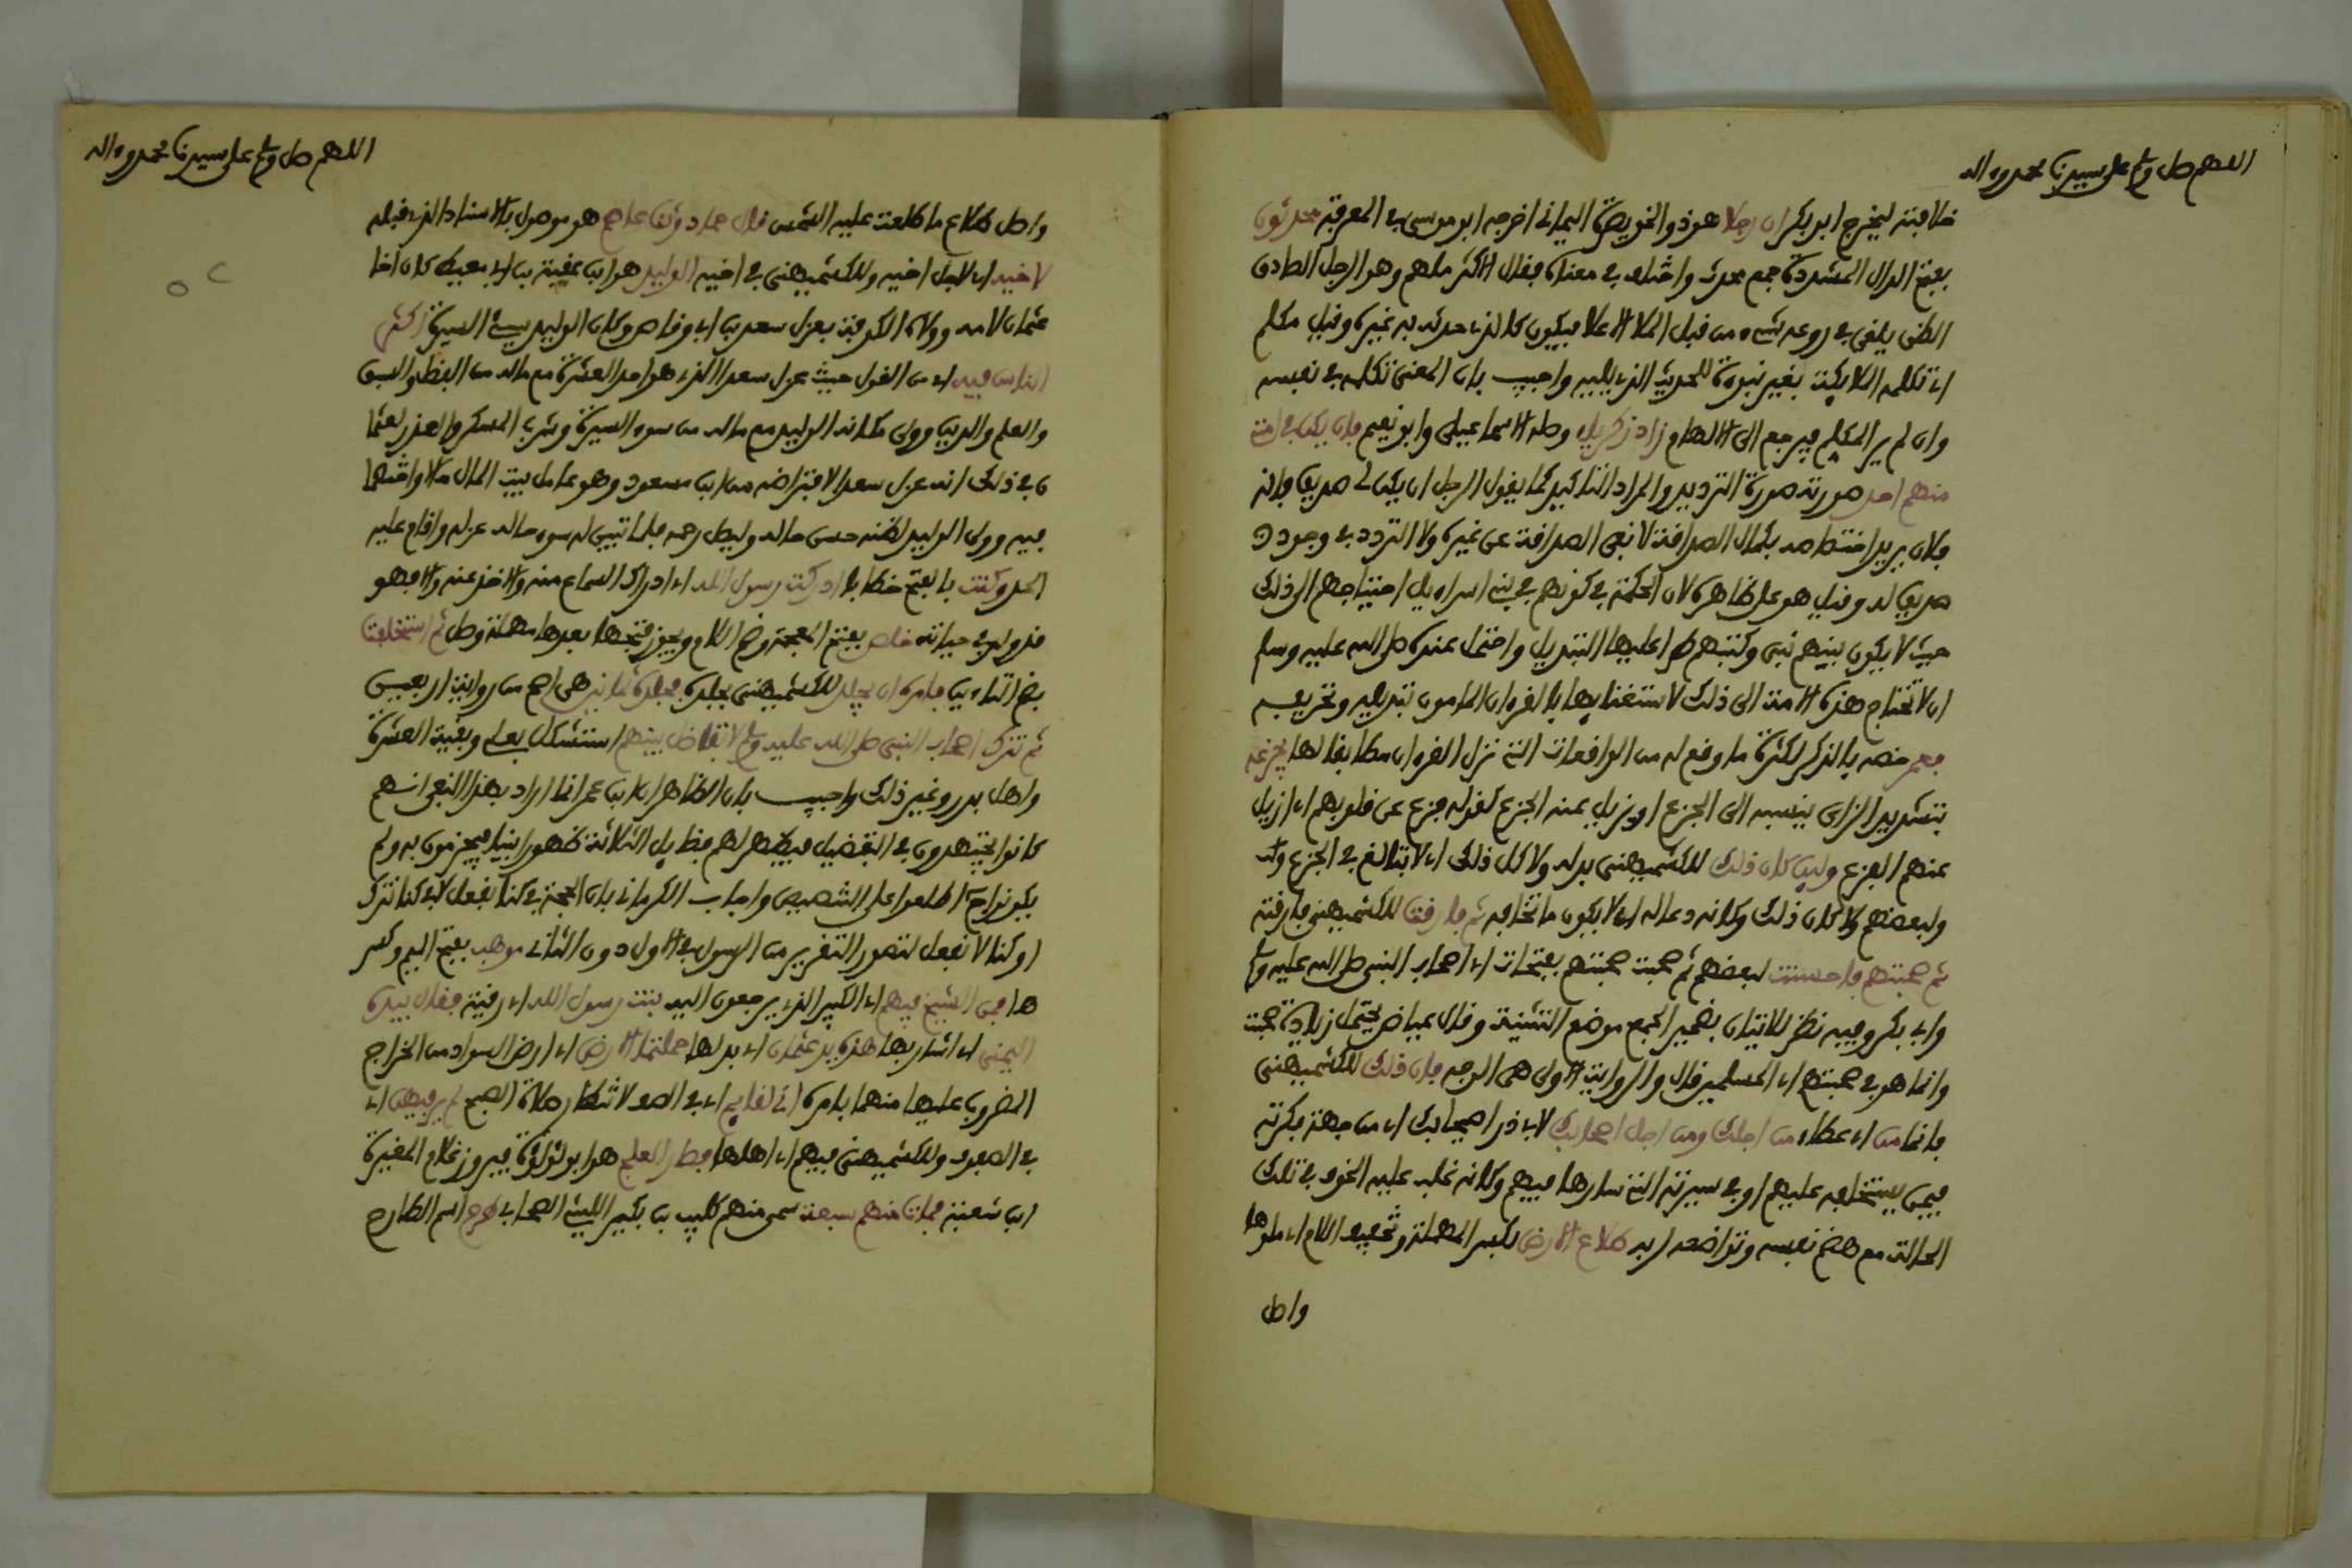 اللهم صل وسلم على سيدنا محمد وءاله
خلافته ليخرج ابو بكر ان رجلا هو ذو الخويصرة اليماني اخرجه ابو موسى في المعرفة محدثون
بفتح الدال المشددة جمع محدث واختلف في معناه فقال الاكثر ملهم وهو الرجل الصادق
الظن يلقى في روعه شيء من قبل الملا الاعلا فيكون كالذي حدثه به غيره وقيل مكلم
اي تكلمه الملائكة بغير نبوءة للحديث الذي يليه واجيب بان المعنى تكلمه في نفسه
وان لم ير المكلم فيرجع الى الالهام زاد زكرياء وصله الاسماعيلي وابو نعيم فان يكن في امتي
منهم احد صورته صورة الترديد والمراد التاكيد كما يقول الرجل ان يكن لي صديق فانه
فلان يريد اختصاصه بكمال الصداقة لا نفي الصداقة عن غيره ولا التردد في وجود
صديق له وقيل هو على ظاهره لان الحكمة في كونهم في بني اسراءيل احتياجهم الى ذلك
حيث لا يكون بينهم نبي وكتبهم طرا عليها التبديل واحتمل عنده صلى الله عليه وسلم
ان لا تحتاج هذه الامة الى ذلك لاستغنايها بالقرءان المامون تبديله وتحريفه
فعمر خصه بالذكر لكثرة ما وقع له من الواقعات التي نزل القرءان مطابقا لها يجزعه
بتشديد الزاي ينسبه الى الجزع او يزيل عنه الجزع كقوله فزع عن قلوبهم اي ازيل
عنهم الفزع وليس كان ذلك للكشميهني بدله ولا كل ذلك اي لا تبالغ في الجزع
ولبعضهم ولا كان ذلك وكانه دعا له اي لا يكون ما تخافه ثم فارقت للكشميهني فارقته
ثم صحبتهم فاحسنت لبعضهم ثم صحبت صحبتهم بفتحات اي اصحاب النبي صلى الله عليه وسلم
وابي بكر وفيه نظر للاتيان بضمير الجمع موضع التثنية وقال عياض يحتمل زيادة صحبت
وانما هو في صحبتهم اي المسلمين قال والرواية الاولى هي الوجه فان ذلك للكشميهني
فانما من اي عطاء من اجلك ومن اجل اصحابك لابي ذر اصيحابك اي من جهة فكرته
فيمن يستخلفه عليهم او في سيرته التي سارها فيهم وكانه غلب عليه الخوف في تلك
الحالة مع هضم نفسه وتواضعه لربه طلاع الارض بكسر المهملة وتخفيف اللام اي ملوها
واصل
اللهم صل وسلم على سيدنا محمد وءاله
واصل طلاع ما طلعت عليه الشمس قال حماد وثنا عاصم هو موصول بالاسناد الذي قبله
لاخيه اي لاجل اخيه وللكشميهني في اخيه الوليد هو ابن عقبة بن ابي معيط كان اخا
عثمان لامه وولاه الكوفة بعزل سعد بن ابي وقاص وكان الوليد سيئ السيرة اكثر
الناس فيه اي من القول حيث عزل سعدا الذي هو احد العشرة مع ماله من الفضل والسبق
والعلم والدين وولى مكانه الوليد مع ماله من سوء السيرة وشرب المسكر والعذر لعثما
ن في ذلك انه عزل سعدا لاقتراضه من ابن مسعود وهو عامل بيت المال مالا واختلفا
فيه وولى الوليد لظنه حسن حاله وليصل رحمه فلما تبين له سوء حاله عزله واقام عليه
الحد وكنت بالفتح خطابا ادركت رسول الله اي ادراك السماع منه والاخذ عنه والا فهو
قد ولد في حياته خلص بفتح المعجمة وضم اللام ويجوز فتحها بعدها مهملة وصل ثم استخلفت
بضم التاءين فامره ان يجلد للكشميهني يجلده فجلده ثمانين هي اصح من رواية اربعين
ثم نترك اصحاب النبي صلى الله عليه وسلم لا نفاضل بينهم استشكل بعلي وبقية العشرة
واهل بدر وغير ذلك واجيب بان الظاهر ان ابن عمر انما اراد بهذا النفي انهم
كانوا يجتهدون في التفضيل فيظهر لهم فضايل الثلاثة ظهورا بينا فيجزمون به ولم
يكونوا ح اطلعوا على التنصيص واجاب الكرماني بان الحجة في كنا نفعل لا في كنا نترك
او كنا لا نفعل لتصور التقرير من الرسول في الاول دون الثاني موهب بفتح الميم وكسر
ها فمن الشيخ فيهم اي الكبير الذي يرجعون اليه بنت رسول الله اي رقية فقال بيده
اليمنى اي اشار بها هذه يد عثمان اي بدلها حملتما الارض اي ارض السواد من الخراج
المضروب عليها منهما بامره اني لقايم اي في الصف لانتظار صلاة الصبح لم ير فيهن اي
في الصفوف وللكشميهني فيهم اي اهلها فطار العلج هو ابو لؤلؤة فيروز غلام المغيرة
ابن شعبة فمات منهم سبعة سمي منهم كليب بن بكير الليثي الصحابي طرح اسم الطارح